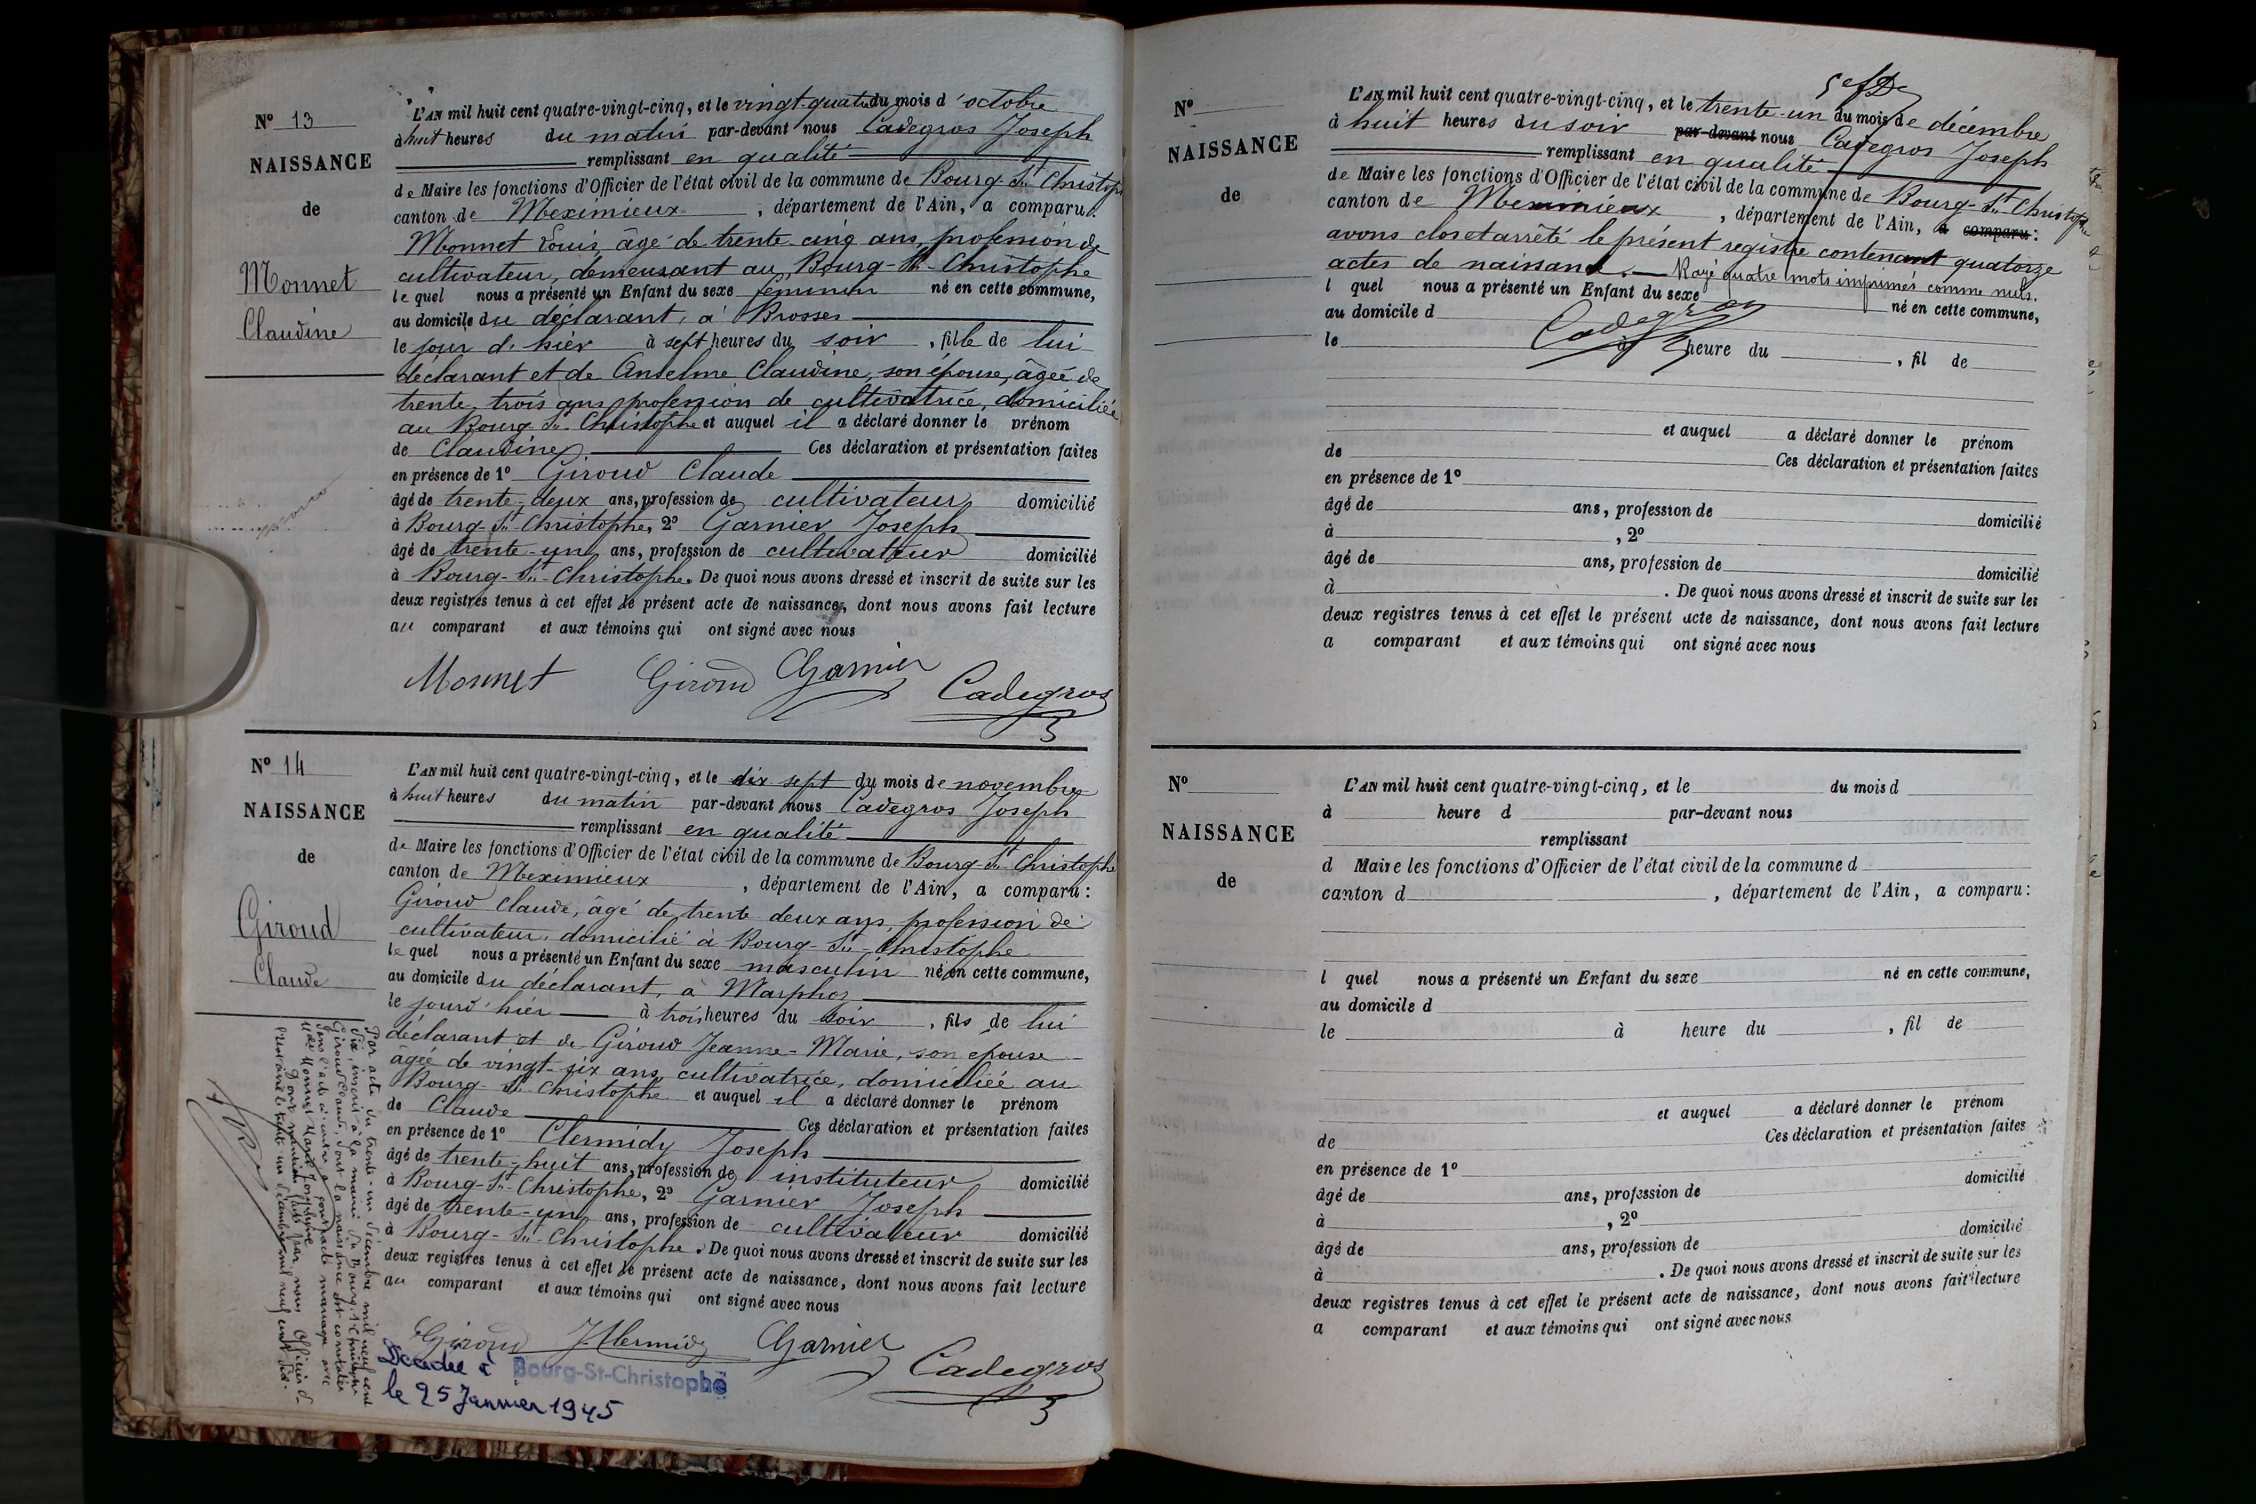 N° 13
NAISSANCE
de
Monnet
Claudine
L'AN mil huit cent quatre-vingt-cinq, et le vingt-quatre du mois d'octobre
à huit heures du matin par-devant nous Cadegros Joseph
remplissant en qualité
de Maire les fonctions d'Officier de l'état civil de la commune de Bourg-St-Christophe
canton de Meximieux, département de l'Ain, a comparu:
Monnet Louis, âgé de trente-cinq ans, profession de
cultivateur, demeurant au Bourg-St-Christophe
lequel nous a présenté un Enfant du sexe féminin né en cette commune,
au domicile du déclarant, à Brosses
le jour d'hier à sept heures du soir, fille de lui
déclarant et de Anselme Claudine, son épouse, âgée de
trente-trois ans, profession de cultivatrice, domiciliée
au Bourg-St-Christophe et auquel il a déclaré donner le prénom
de Claudine Ces déclaration et présentation faites
en présence de 1° Giroud Claude
âgé de trente-deux ans, profession de cultivateur domicilié
à Bourg-St-Christophe, 2° Garnier Joseph
âgé de trente-un ans, profession de cultivateur domicilié
à Bourg-St-Christophe. De quoi nous avons dressé et inscrit de suite sur les
deux registres tenus à cet effet le présent acte de naissance, dont nous avons fait lecture
au comparant et aux témoins qui ont signé avec nous
Monnet Giroud Garnier Cadegros
N° 14
NAISSANCE
de
Giroud
Claude
L'AN mil huit cent quatre-vingt-cinq, et le dix sept du mois de novembre
à huit heures du matin par-devant nous Cadegros Joseph
remplissant en qualité
de Maire les fonctions d'Officier de l'état civil de la commune de Bourg-St-Christophe
canton de Meximieux, département de l'Ain, a comparu:
Giroud Claude, âgé de trente deux ans, profession de
cultivateur, domicilié à Bourg-St-Christophe
lequel nous a présenté un Enfant du sexe masculin né en cette commune,
au domicile du déclarant, à Marphoz
le jour d'hier à trois heures du soir, fils de lui
déclarant et de Giroud Jeanne-Marie, son épouse
âgée de vingt-six ans, cultivatrice, domiciliée au
Bourg-St-Christophe et auquel il a déclaré donner le prénom
de Claude Ces déclaration et présentation faites
en présence de 1° Clermidy Joseph
âgé de trente-huit ans, profession de instituteur domicilié
à Bourg-St-Christophe, 2° Garnier Joseph
âgé de trente-un ans, profession de cultivateur domicilié
à Bourg-St-Christophe. De quoi nous avons dressé et inscrit de suite sur les
deux registres tenus à cet effet le présent acte de naissance, dont nous avons fait lecture
au comparant et aux témoins qui ont signé avec nous
Giroud J. Clermidy Garnier Cadegros
Par acte du trente-un décembre mil neuf cent
dix, inscrit à la mairie du Bourg-St-Christophe
Giroud Claude, dont la naissance est constatée
dans l'acte ci-contre a contracté mariage avec
Monnet Marie Joséphine
Dont mention faite par nous Officier d
le trente un décembre mil neuf cent dix.
Décédé à Bourg-St-Christophe
le 25 Janvier 1945
N°
NAISSANCE
de
L'AN mil huit cent quatre-vingt-cinq, et le trente-un du mois de décembre
à huit heures du soir par-devant nous Cadegros Joseph
remplissant en qualité
de Maire les fonctions d'Officier de l'état civil de la commune de Bourg-St-Christophe
canton de Meximieux, département de l'Ain, a comparu:
avons clos et arrêté le présent registre contenant quatorze
actes de naissance. Rayé quatre mots imprimés comme nuls.
l quel nous a présenté un Enfant du sexe né en cette commune,
au domicile d Cadegros
le à heure du , fil de
et auquel a déclaré donner le prénom
de Ces déclaration et présentation faites
en présence de 1°
âgé de ans, profession de domicilié
à , 2°
âgé de ans, profession de domicilié
à . De quoi nous avons dressé et inscrit de suite sur les
deux registres tenus à cet effet le présent acte de naissance, dont nous avons fait lecture
a comparant et aux témoins qui ont signé avec nous
N°
NAISSANCE
de
L'AN mil huit cent quatre-vingt-cinq, et le du mois d
à heure d par-devant nous
remplissant
d Maire les fonctions d'Officier de l'état civil de la commune d
canton d , département de l'Ain, a comparu:
l quel nous a présenté un Enfant du sexe né en cette commune,
au domicile d
le à heure du , fil de
et auquel a déclaré donner le prénom
de Ces déclaration et présentation faites
en présence de 1°
âgé de ans, profession de domicilié
à , 2°
âgé de ans, profession de domicilié
à . De quoi nous avons dressé et inscrit de suite sur les
deux registres tenus à cet effet le présent acte de naissance, dont nous avons fait lecture
a comparant et aux témoins qui ont signé avec nous